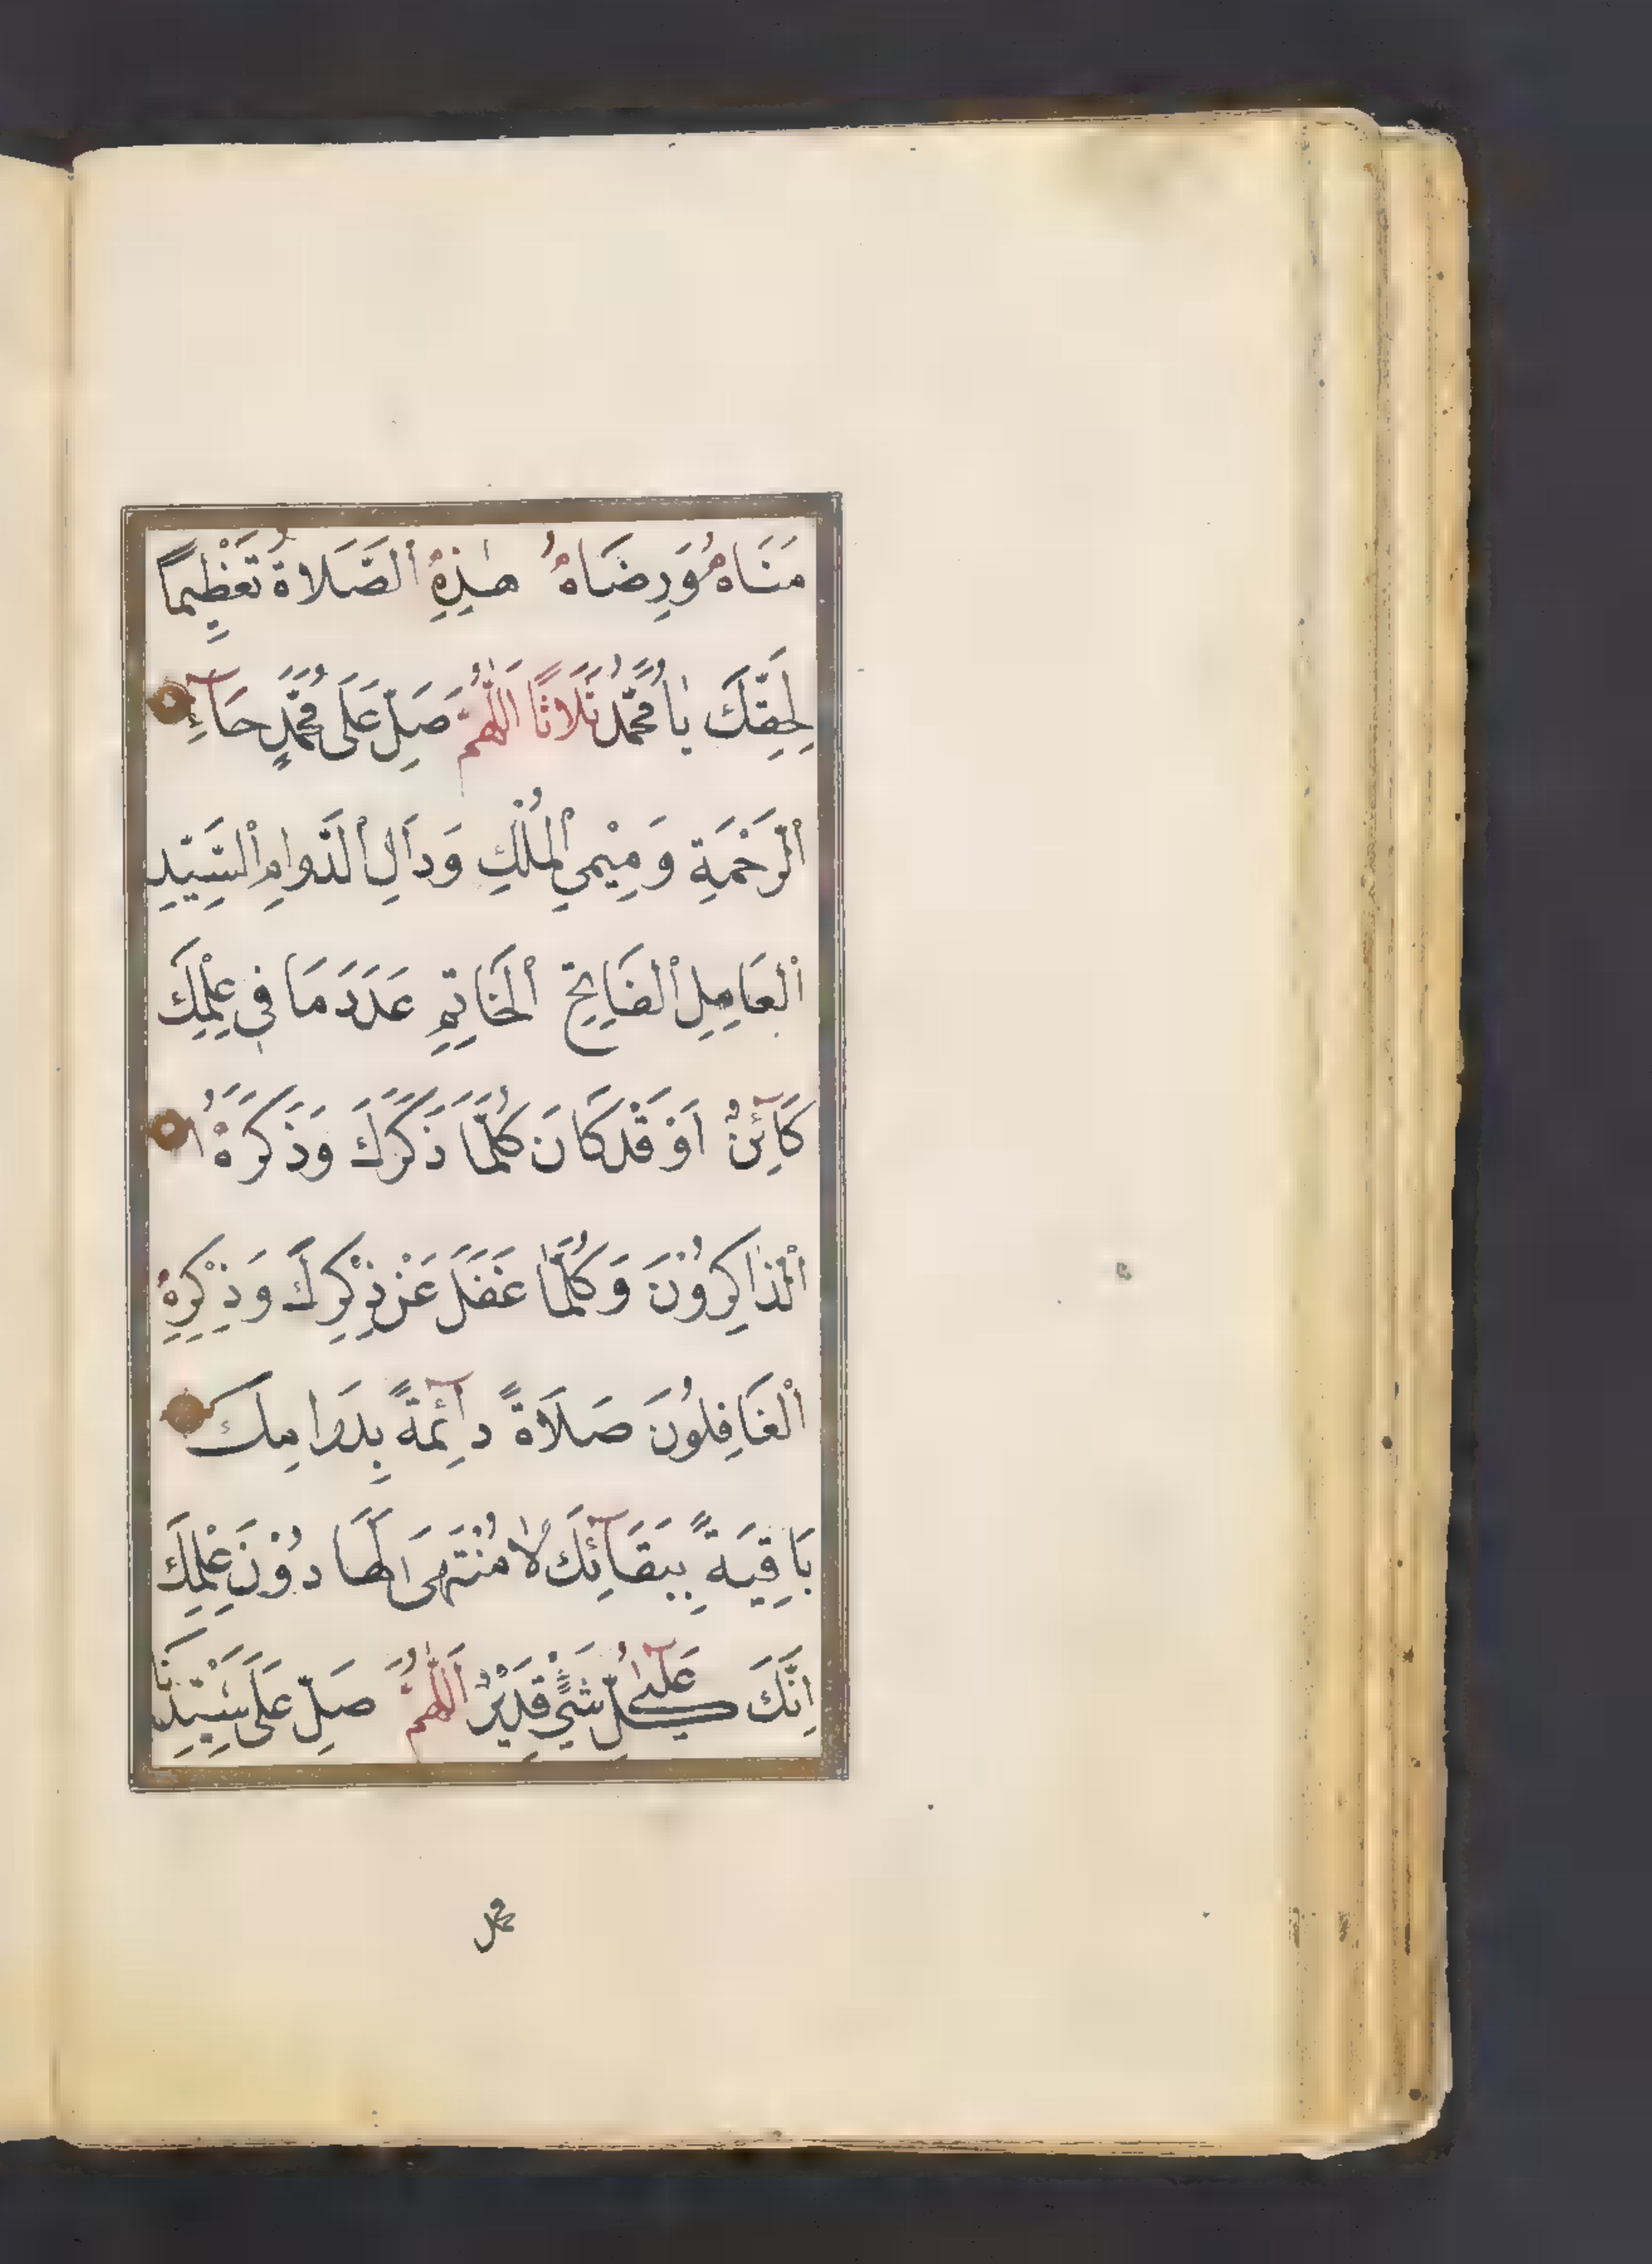 مَنَاهُ وَرِضَاهُ هٰذِهِ ٱلصَّلَاةُ تَعْظِيمًا
لِحَقِّكَ يَا مُحَمَّدُ ثَلَاثًا اَللّٰهُمَّ صَلِّ عَلَى مُحَمَّدٍ حَآءِ
ٱلرَّحْمَةِ وَمِيْمَىِ ٱلْمُلْكِ وَدَالِ ٱلدَّوَامِ ٱلسَّيِّدِ
ٱلْكَامِلِ ٱلْفَاتِحِ ٱلْخَاتِمِ عَدَدَ مَا فِى عِلْمِكَ
كَآئِنٌ اَوْ قَدْ كَانَ كُلَّمَا ذَكَرَكَ وَذَكَرَهُ
ٱلذَّاكِرُوْنَ وَكُلَّمَا غَفَلَ عَنْ ذِكْرِكَ وَذِكْرِهِ
ٱلْغَافِلُوْنَ صَلَاةً دَآئِمَةً بِدَوَامِكَ
بَاقِيَةً بِبَقَآئِكَ لَا مُنْتَهَى لَهَا دُوْنَ عِلْمِكَ
اِنَّكَ عَلٰى كُلِّ شَىْءٍ قَدِيْرٌ اَللّٰهُمَّ صَلِّ عَلَى سَيِّدِنَا
محمد